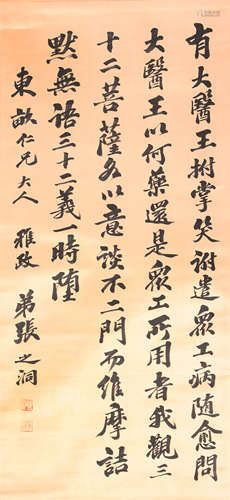 有大醫王拊掌笑謝遣眾工病随愈問
大醫王以何藥還是眾工所用者我觀三
十二菩薩各以意談不二門而維摩詰
默無語三十二義一時墮
東畝仁兄大人 雅政 弟張之洞